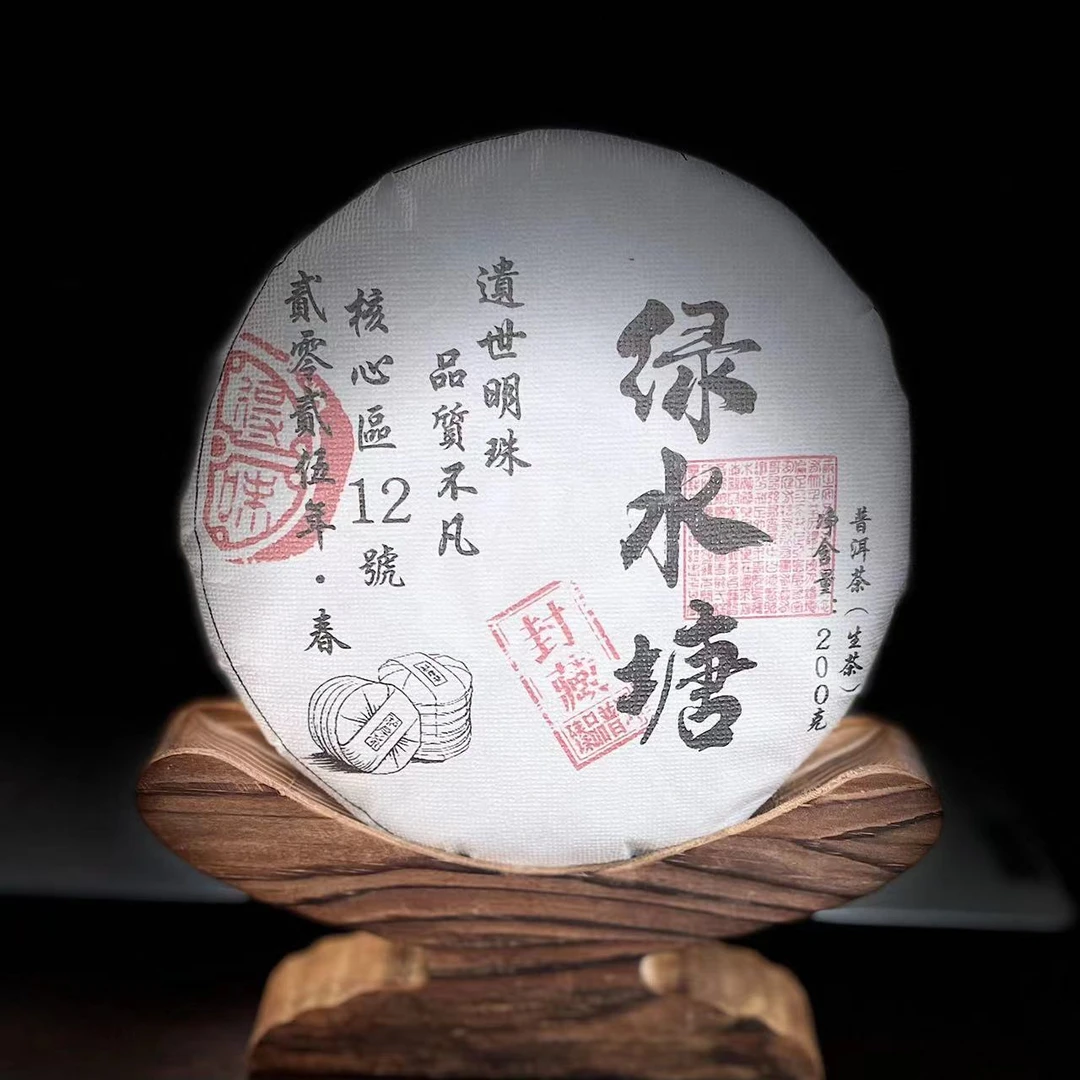 普洱茶（生茶）
净含量：200克
绿水塘
遺世明珠
品質不凡
核心區12號
貳零貳伍年·春
封藏
普品臻